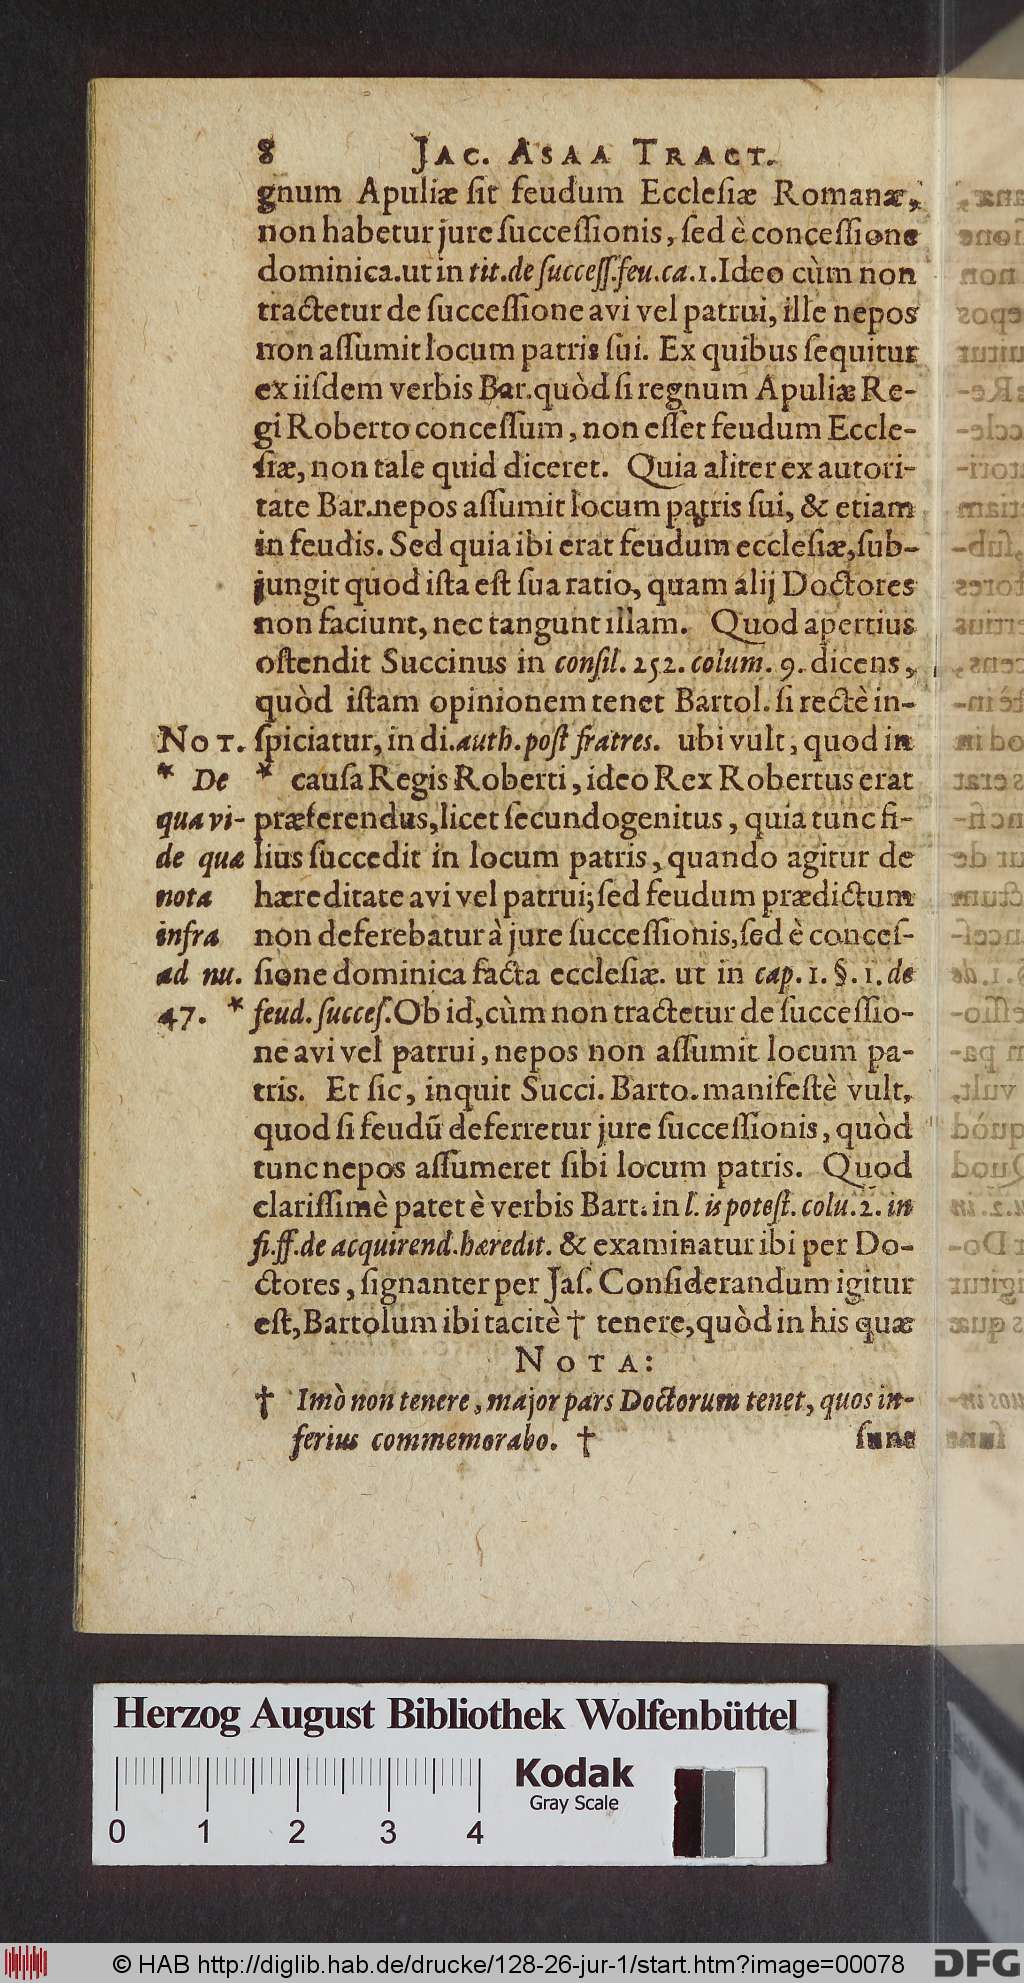 8 JAC. ASAA TRACT.
gnum Apuliæ ſit feudum Eccleſiæ Romanæ,
non habetur jure ſucceſſionis, ſed è conceſſione
dominica. ut in tit. de ſucceſſ. feu. ca. 1. Ideo cùm non
tractetur de ſucceſſione avi vel patrui, ille nepos
non aſſumit locum patris ſui. Ex quibus ſequitur
ex iiſdem verbis Bar. quòd ſi regnum Apuliæ Re-
gi Roberto conceſſum, non eſſet feudum Eccle-
ſiæ, non tale quid diceret. Quia aliter ex autori-
tate Bar. nepos aſſumit locum patris ſui, & etiam
in feudis. Sed quia ibi erat feudum eccleſiæ, ſub-
jungit quod iſta eſt ſua ratio, quam alij Doctores
non faciunt, nec tangunt illam. Quod apertius
oſtendit Succinus in conſil. 252. colum. 9. dicens,
quòd iſtam opinionem tenet Bartol. ſi rectè in-
ſpiciatur, in di. auth. poſt fratres. ubi vult, quod in
* cauſa Regis Roberti, ideo Rex Robertus erat
præferendus, licet ſecundogenitus, quia tunc fi-
lius ſuccedit in locum patris, quando agitur de
hæreditate avi vel patrui; ſed feudum prædictum
non deferebatur à jure ſucceſſionis, ſed è conceſ-
ſione dominica facta eccleſiæ. ut in cap. 1. §. 1. de
* feud. ſucceſ. Ob id, cùm non tractetur de ſucceſſio-
ne avi vel patrui, nepos non aſſumit locum pa-
tris. Et ſic, inquit Succi. Barto. manifeſtè vult,
quod ſi feudū deferretur jure ſucceſſionis, quòd
tunc nepos aſſumeret ſibi locum patris. Quod
clariſſimè patet è verbis Bart. in l. is poteſt. colu. 2. in
fi. ff. de acquirend. hæredit. & examinatur ibi per Do-
ctores, ſignanter per Jaſ. Conſiderandum igitur
eſt, Bartolum ibi tacitè † tenere, quòd in his quæ
NOT.
* De
qua vi-
de quæ
nota
infra
ad nu.
47.
NOTA:
† Imò non tenere, major pars Doctorum tenet, quos in-
ferius commemorabo. †
ſunt
Herzog August Bibliothek Wolfenbüttel
Kodak
Gray Scale
0 1 2 3 4
© HAB http://diglib.hab.de/drucke/128-26-jur-1/start.htm?image=00078
DFG